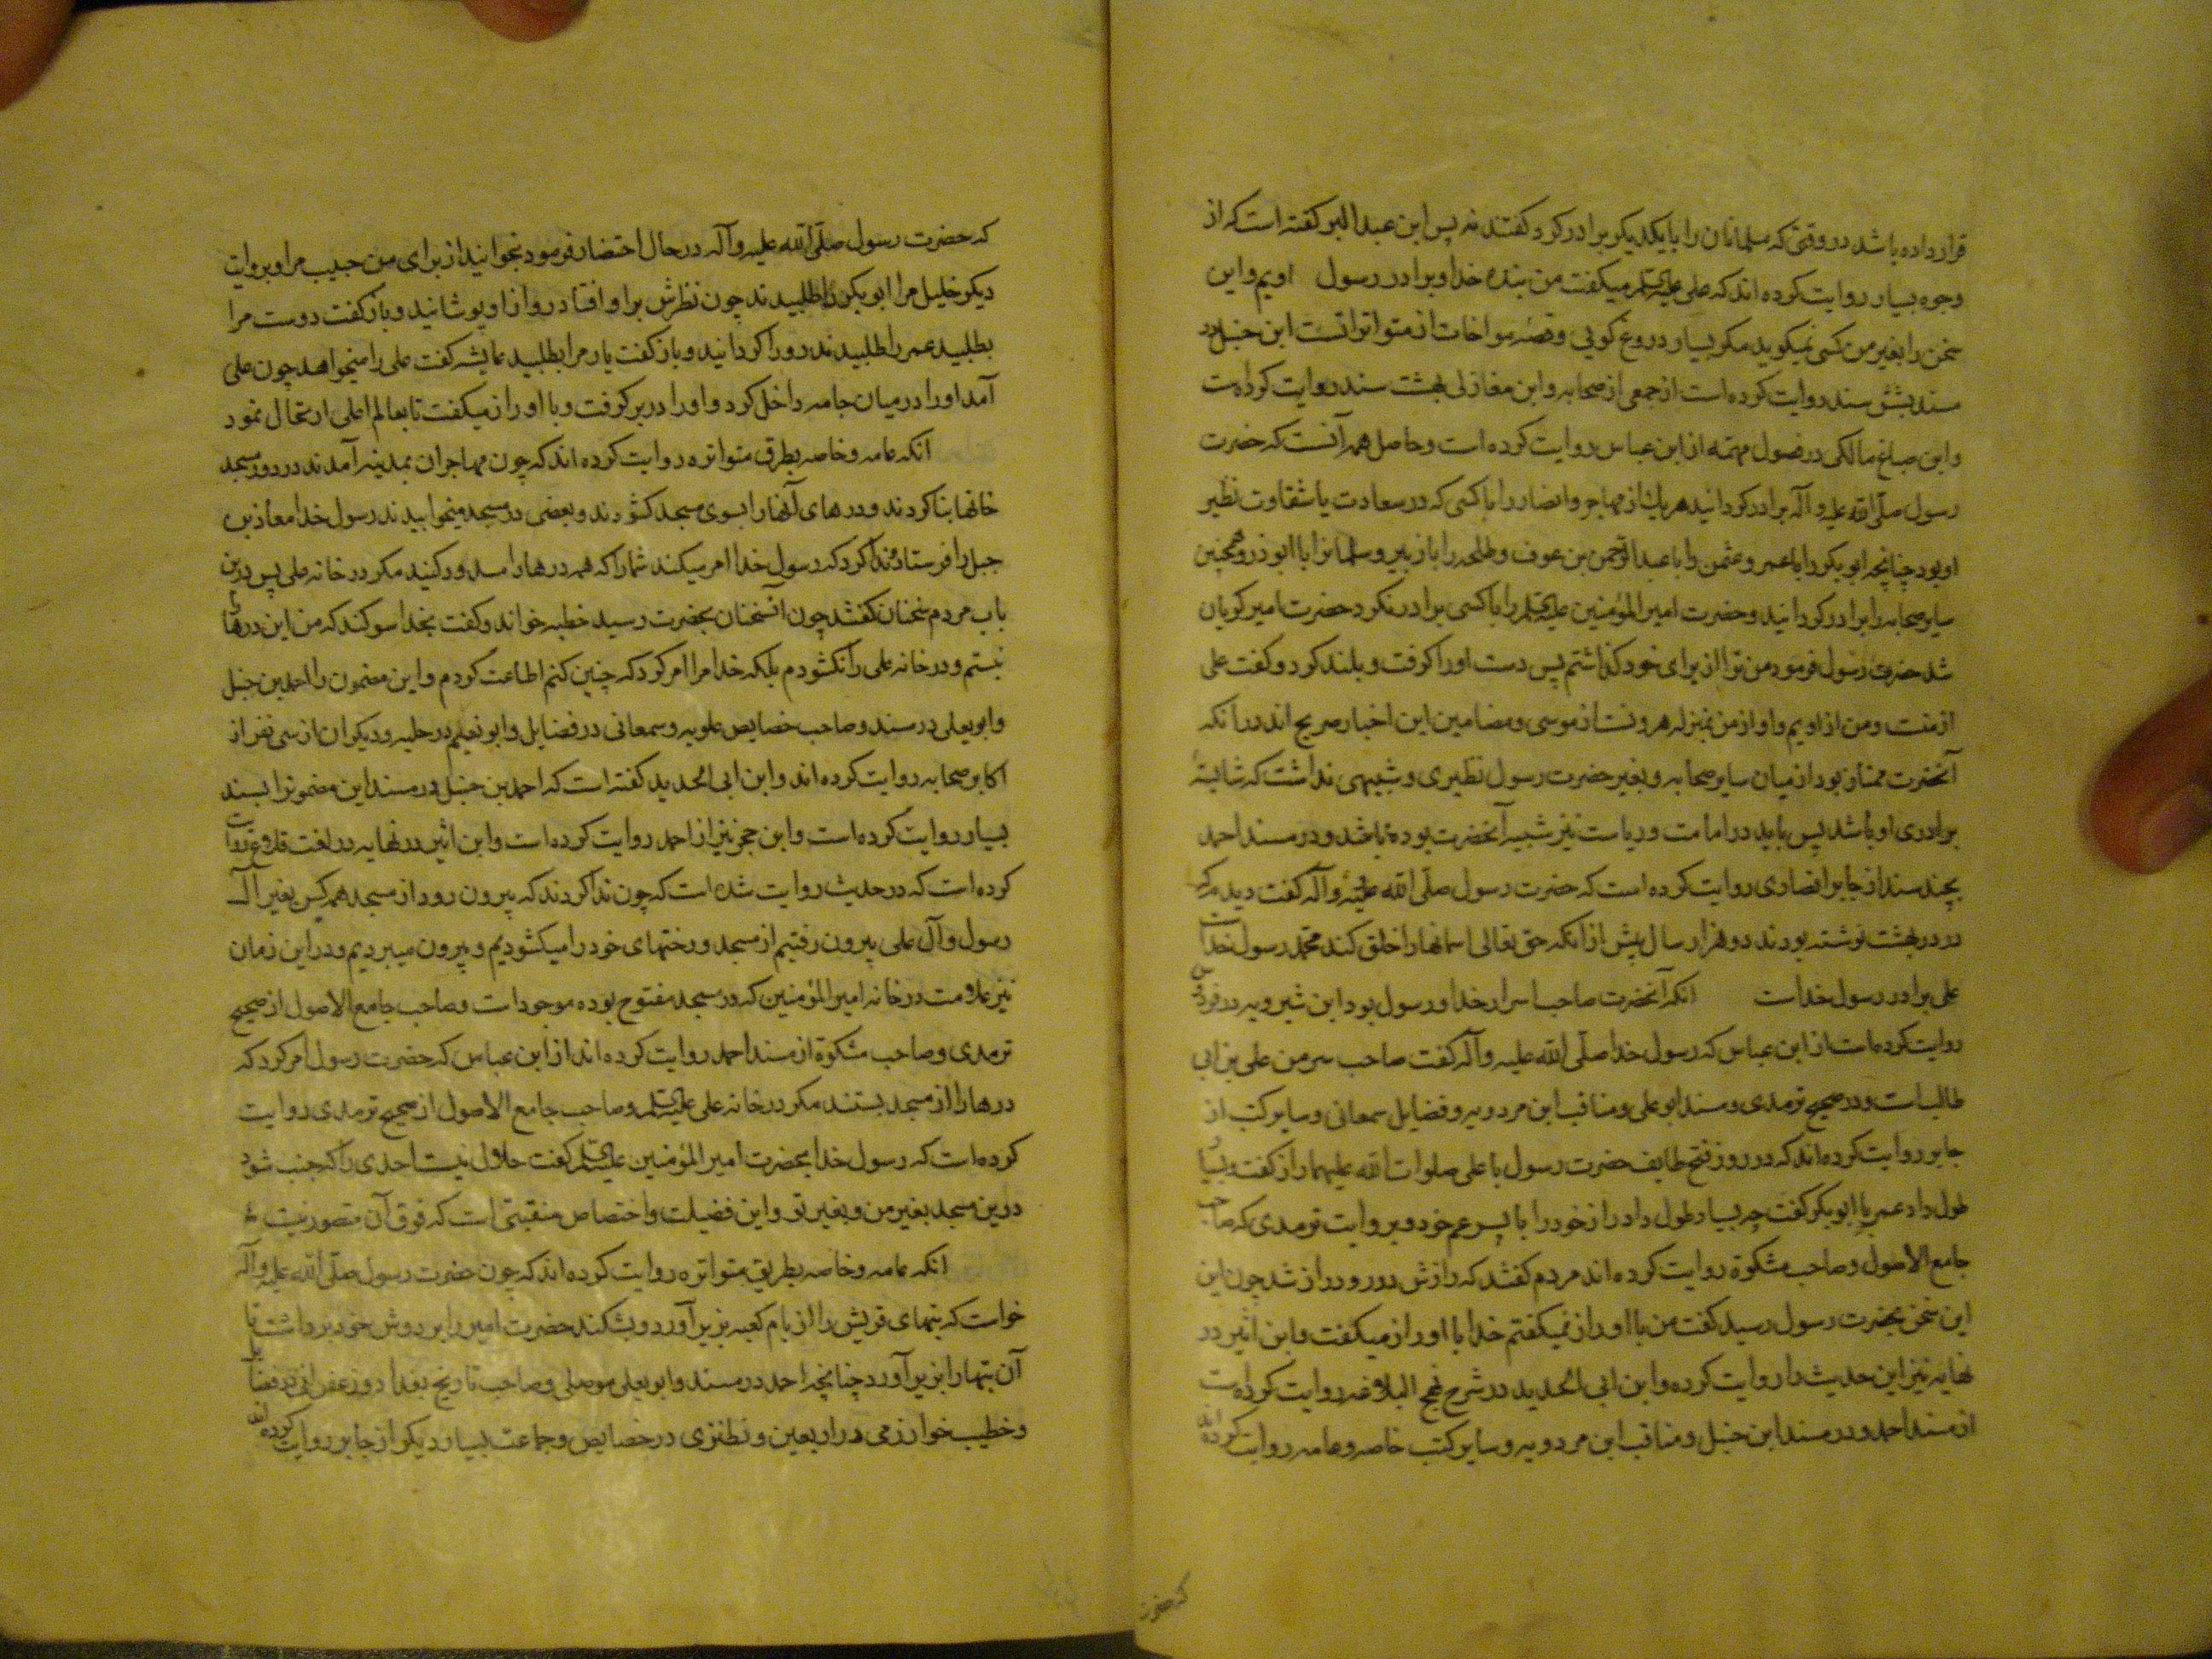 قرار داده باشد در وقتی که مسلمانان را با یکدیگر برادر کرد گفتند نه پس ابن عبد البر گفته است که از
وجوه بسیار روایت کرده اند که علی علیه السلم میگفت من بنده خدا و برادر رسول اویم و این
سخن را بغیر من کسی نمیگوید مکر بسیار دروغ گویی و قصه مواخات از متواترانست ابن حنبل در
مسند بشش سند روایت کرده است از جمعی از صحابه و ابن مغازلی بهشت سند روایت کرده است
و ابن صباغ مالکی در فصول مهمه از ابن عباس روایت کرده است و حاصل همه آنست که حضرت
رسول صلّی الله علیه و آله برادر کردانید هر یک از مهاجر و انصار را با کسی که در سعادت یا شقاوت نظیر
او بود چنانچه ابو بکر را با عمر و عثمن را با عبد الرحمن بن عوف و طلحه را با زبیر و سلمانرا با ابوذر و همچنین
سایر صحابه را برادر کردانید و حضرت امیر المؤمنین علیه السلم را با کسی برادر نکرد حضرت امیر کریان
شد حضرت رسول فرمود من ترا از برای خود کذاشتم پس دست او را کرفت و بلند کرد و کفت علی
از منست و من از اویم و او از من بمنزله هرونست از موسی و مضامین این اخبار صریح اند در آنکه
آنحضرت ممتاز بود از میان سایر صحابه و بغیر حضرت رسول نظیری و شبیهی نداشت که شایستهٔ
برادری او باشد پس باید در امامت و ریاست نیز شبیه آنحضرت بوده باشد و در مسند احمد
بچند سند از جابر انصاری روایت کرده است که حضرت رسول صلّی الله علیه و آله کفت دیدم که
در در بهشت نوشته بودند دو هزار سال پیش از انکه حق تعالی اسمانها را خلق کند محمّد رسول خداست
علی برادر رسول خداست انکه آنحضرت صاحب اسرار خدا و رسول بود ابن شیرویه در فردوس
روایت کرده است از ابن عباس که رسول خدا صلّی الله علیه و آله کفت صاحب سر من علی بن ابی
طالب است و در صحیح ترمدی و مسند ابو یعلی و مناقب ابن مردویه و فضایل سمعانی و سایر کتب از
جابر روایت کرده اند که در روز فتح طایف حضرت رسول با علی صلوات الله علیهما راز کفت و بسیار
طول داد عمر با ابو بکر کفت چه بسیار طول داد راز خود را با پسر عم خود و بروایت ترمدی که صاحب
جامع الاصول و صاحب مشکوة روایت کرده اند مردم کفتند که رازش دور و دراز شد چون این
این سخن بحضرت رسول رسید کفت من با او راز نمیکفتم خدا با او راز میکفت و ابن اثیر در
نهایه نیز این حدیث را روایت کرده و ابن ابی الحدید در شرح نهج البلاغه روایت کرده است
از مسند احمد و در مسند ابن حنبل و مناقب ابن مردویه و سایر کتب خاصه و عامه روایت کرده اند
که حضرت
که حضرت رسول صلّی الله علیه و آله در حال احتضار فرمود بخوانید از برای من حبیب مرا و بروایت
دیکر خلیل مرا ابو بکر را طلبیدند چون نظرش بر او افتاد رو از او پوشانید و باز کفت دوست مرا
بطلبید عمر را طلبیدند رو را کردانید و باز کفت یار مرا بطلبید عایشه کفت علی را میخواهد چون علی
آمد او را در میان جامه داخل کرد و او را در بر کرفت و با او راز میکفت تا بعالم اعلی ارتحال نمود
انکه عامه و خاصه بطرق متواتره روایت کرده اند که چون مهاجران بمدینه آمدند در دور مسجد
خانها بنا کردند و درهای آنها را بسوی مسجد کشودند و بعضی در مسجد میخوابیدند رسول خدا معاذ بن
جبل را فرستاد و ندا کرد که رسول خدا امر میکند شما را که همه درها را مسدود کنید مکر در خانه علی پس درین
باب مردم سخنان کفتند چون آنسخنان بحضرت رسید خطبه خواند و کفت بخدا سوکند که من این درها را
نبستم و در خانه علی را نکشودم بلکه خدا مرا امر کرد که چنین کنم اطاعت کردم و این مضمون را احمد بن حنبل
و ابو یعلی در مسند و صاحب خصایص علویه و سمعانی در فضایل و ابو نعیم در حلیه و دیکران از سی نفر از
اکابر صحابه روایت کرده اند و ابن ابی الحدید کفته است که احمد بن حنبل در مسند این مضمونرا بسند
بسیار روایت کرده است و ابن حجر نیز از احمد روایت کرده است و ابن اثیر در نهایه در لغت قلع روایت
کرده است که در حدیث روایت شده است که چون ندا کردند که بیرون رود از مسجد همه کس بغیر آل
رسول و آل علی بیرون رفتیم از مسجد و رختهای خود را میکشودیم و بیرون میبردیم و در این زمان
نیز علامت در خانه امیر المؤمنین که در مسجد مفتوح بوده موجود است و صاحب جامع الاصول از صحیح
ترمدی و صاحب مشکوة از مسند احمد روایت کرده اند از ابن عباس که حضرت رسول امر کرد که
درها را از مسجد بستند مکر در خانه علی علیه السلم و صاحب جامع الاصول از صحیح ترمدی روایت
کرده است که رسول خدا بحضرت امیر المؤمنین علیه السلم کفت حلال نیست احدی را که جنب شود
درین مسجد بغیر من و بغیر تو و این فضیلت و اختصاص منقبتی است که فوق آن متصور نیست
انکه عامه و خاصه بطریق متواتره روایت کرده اند که چون حضرت رسول صلّی الله علیه و آله
خواست که بتهای قریش را از بام کعبه بزیر آورد و بشکند حضرت امیر را بر دوش خود برداشت تا
آن بتها را بزیر آورد چنانچه احمد در مسند و ابو یعلی موصلی و صاحب تاریخ بغداد و زعفرانی در فضایل
و خطیب خوارزمی در اربعین و نطنزی در خصایص و جماعت بسیار دیکر از جابر روایت کرده اند